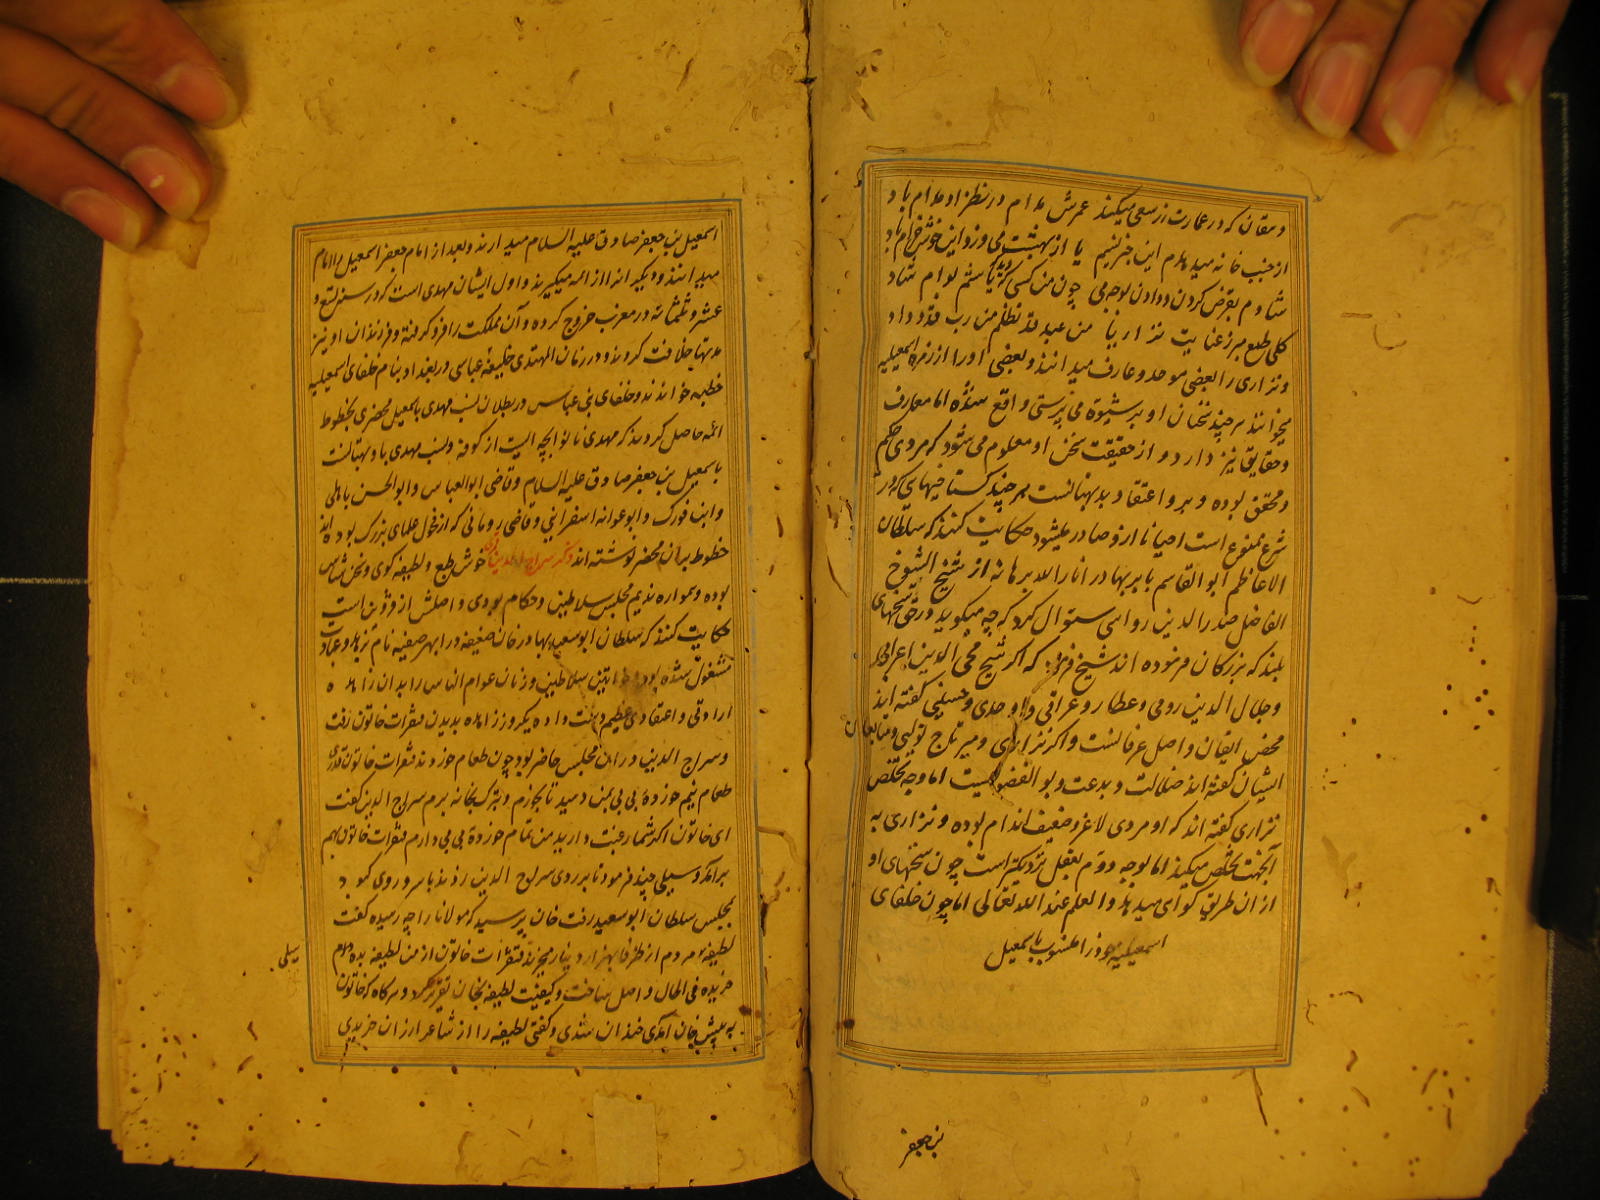 دهقان که در عمارت از سعی میکند عمرش مدام در نظر او مدام باد
از جنب خانه میدهدم این خبر نسیم یا از بهشت می وزد این خوش خرام باد
شادم بقرض کردن و دادن بوجه می چون من کسی که دید کباشم بوام شاد
کلی طمع مبر ز عنایت نزاریا من عبد قد تظلم من رب قد وداد
و نزاری را بعضی موحد و عارف میدانند و بعضی او را از زمره اسمعیلیه
میخوانند هر چند سخنان او بر شیوه می پرستی واقع شده اما معارف
و حقایق نیز دارد و از حقیقت سخن او معلوم می شود که مردی حکیم
و محقق بوده و برو اعتقاد بد بهتانست هر چند گستاخیهای که در
شرع ممنوع است احیانا ازو صادر میشود حکایت کنند که سلطان
الاعاظم ابو القاسم بابر بهادر انار الله برهانه از شیخ الشیوخ
الفاضل صدر الدین رواسی سئوال کرد که چه میگوید در حق سخنهای
بلند که بزرگان فرموده اند شیخ فرمود که اگر شیخ محی الدین اعرابی
و جلال الدین رومی و عطار و عراقی و اوحدی و حسینی گفته اند
محض ایقان و اصل عرفانست و اگر نزاری و میر تاج تولی و متابعان
ایشان گفته اند ضلالت و بدعت و بو الفضولیست اما وجه تخلص
نزاری گفته اند که او مردی لاغر و ضعیف اندام بوده و نزاری به
آنجهت تخلص میکند اما بوجه دوم بعقل نزدیکتر است چون سخنهای او
از ان طریق گواهی میدهد و العلم عند الله تعالی اما چون خلفای
اسمعیلیه خود را منسوب باسمعیل
بن جعفر
اسمعیل بن جعفر صادق علیه السلام میدارند و بعد از امام جعفر اسمعیل را امام
میدانند و دیگیرانه از ائمه میگیرند و اول ایشان مهدی است که در سنه تسع و
عشر و ثلثمائه در مغرب خروج کرده و آن مملکت را فرو گرفته و فرزندان او نیز
مدتها خلافت کردند و در زمان المهتدی خلیفه عباسی در بغداد بنام خلفای اسمعیلیه
خطبه خواندند و خلفای بنی عباس در بطلان نسب مهدی باسمعیل محضری بخطوط
ائمه حاصل کردند که مهدی نانوا بچه ایست از کوفه و نسب مهدی با و بهتانست
باسمعیل بن جعفر صادق علیه السلام و قاضی ابو العباس و ابو الحسن باهلی
و ابن فورک و ابو عوانه اسفراینی و قاضی رومانی که از فحول علمای بزرگ بوده اند
خطوط بران محضر نوشته اند ذکر سراج الدین قزوینی خوش طبع و لطیفه گوی و سخن شناس
بوده و همواره ندیم مجلس سلاطین و حکام بودی و اصلش از قزوین است
حکایت کنند که سلطان ابو سعید بهادر خان ضعیفه در ابهر صفیه نام بزهد و عبادت
مشغول شده بود خواتین سلاطین و زنان عوام الناس را بدان زاهده
ارادتی و اعتقادی عظیم دست داده یکروز زاهده بدیدن قنقرات خاتون رفت
و سراج الدین در ان مجلس حاضر بود چون طعام خوردند قنقرات خاتون قدری
طعام نیم خورده بی بی بمن دهید تا بخورم و تبرک بخانه برم سراج الدین گفت
ای خاتون اگر شما رغبت دارید من تمام خورده بی بی دارم قنقرات خاتون بهم
برآمد و سیلی چند فرمود تا بر روی سراج الدین زدند با سر و روی کبود
بمجلس سلطان ابو سعید رفت خان پرسید که مولانا را چه رسیده گفت
لطیفه مردم از ظرفا بهزار دینار میخرند قنقرات خاتون از من لطیفه بده
سیلی
خریده فی الحال و اصل ساخت و کیفیت لطیفه بخان تقریر کرد و هر گاه که خاتون
به پیش خان آمدی خندان شدی و گفتی لطیفه را از شاعر ارزان خریدی